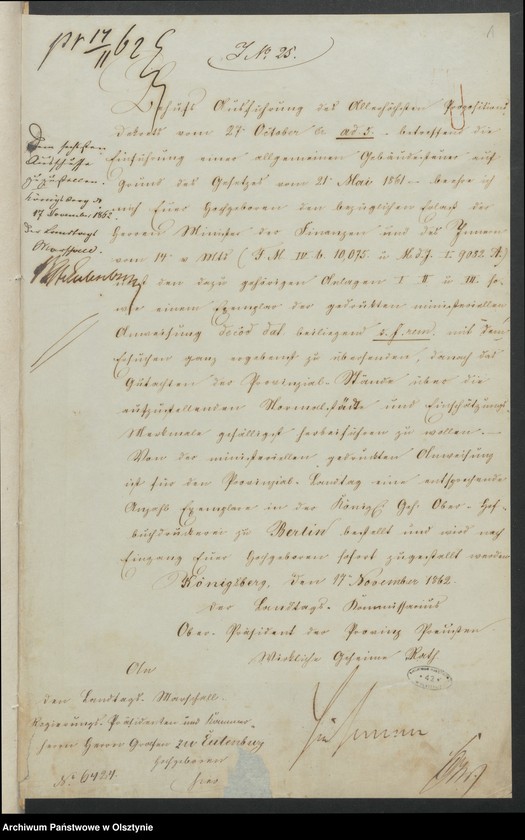 pr 17/11 62
J. No 25.
Behufs Ausführung des Allerhöchsten Propositions-
Dekrets vom 27. October c. ad 5. betreffend die
Einführung einer allgemeinen Gebäudesteuer auf
Grund des Gesetzes vom 21. Mai 1861 beehre ich
mich Euer Hochgeboren den bezüglichen Erlaß der
Herren Minister der Finanzen und des Innern
vom 14. v. Mts (F. M. IV. b. 10,075. u M. d. J. I. 9082. A)
nebst den dazu gehörigen Anlagen I II u III. so-
wie einem Exemplar der gedruckten ministeriellen
Anweisung beiliegend s. f. rem. mit dem
Ersuchen ganz ergebenst zu übersenden, danach das
Gutachten der Provinzial-Stände über die
aufzustellenden Normalstädte und Einschätzungs-
Merkmale gefälligst herbeiführen zu wollen.
Von der ministeriellen gedruckten Anweisung
ist für den Provinzial-Landtag eine entsprechende
Anzahl Exemplare in der Königl. Geh. Ober-Hof-
buchdruckerei zu Berlin bestellt und wird nach
Eingang Euer Hochgeboren sofort zugestellt werden
Königsberg, den 17. November 1862.
Der Landtags-Kommissarius
Ober-Präsident der Provinz Preußen
Wirkliche Geheime Rath
Dem sechsten
Ausschusse
zuzustellen.
Königsberg d.
17 November 1862.
Der Landtags
Marschall.
Eulenburg
An
den Landtags-Marschall
Regierungs-Präsidenten und Kammer-
herrn Herrn Grafen zu Eulenburg
Hochgeboren
hier
No 6424
42
Archiwum Państwowe w Olsztynie